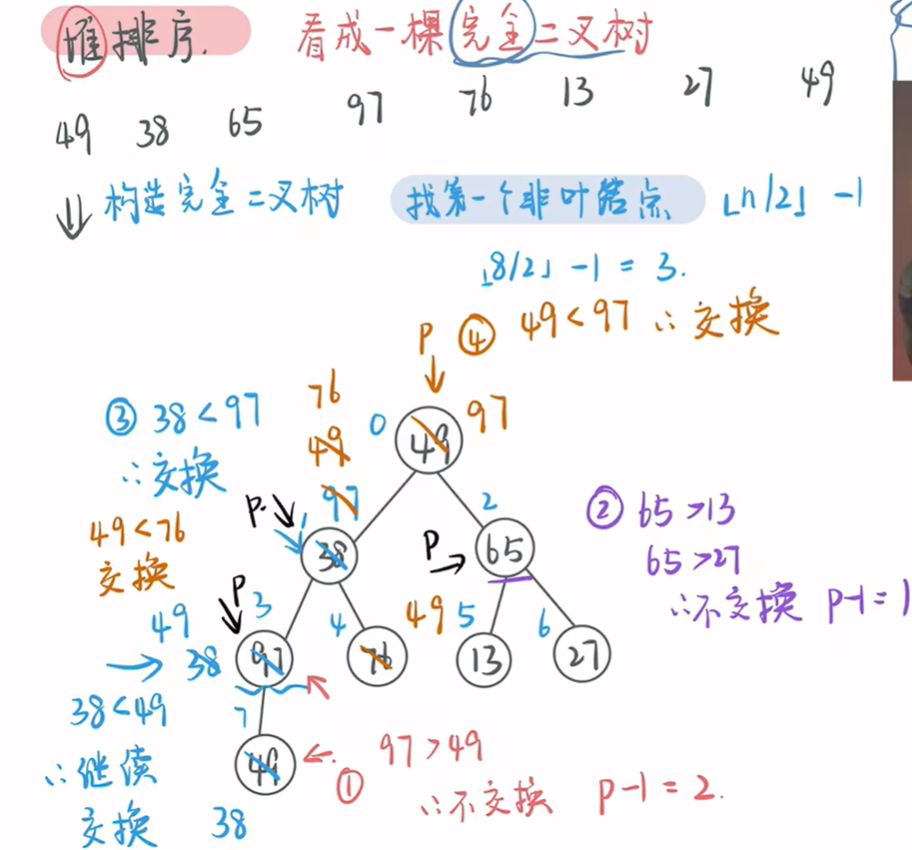 堆排序. 看成一棵完全二叉树
49 38 65 97 76 13 27 49
⇓ 构造完全二叉树 找第一个非叶结点 ⌊n/2⌋ -1
⌊8/2⌋ -1 = 3.
P ④ 49<97 ∴交换
③ 38<97
∴交换
76
49
97
0 49 97
49<76
交换
P. 1 38
2 P → 65
② 65>13
65>27
∴不交换 P-1=1
P
49
→ 38 3 97
4 76 49
5 13
6 27
38<49
∴继续
交换 38
7 49
← ① 97>49
∴不交换 P-1=2.